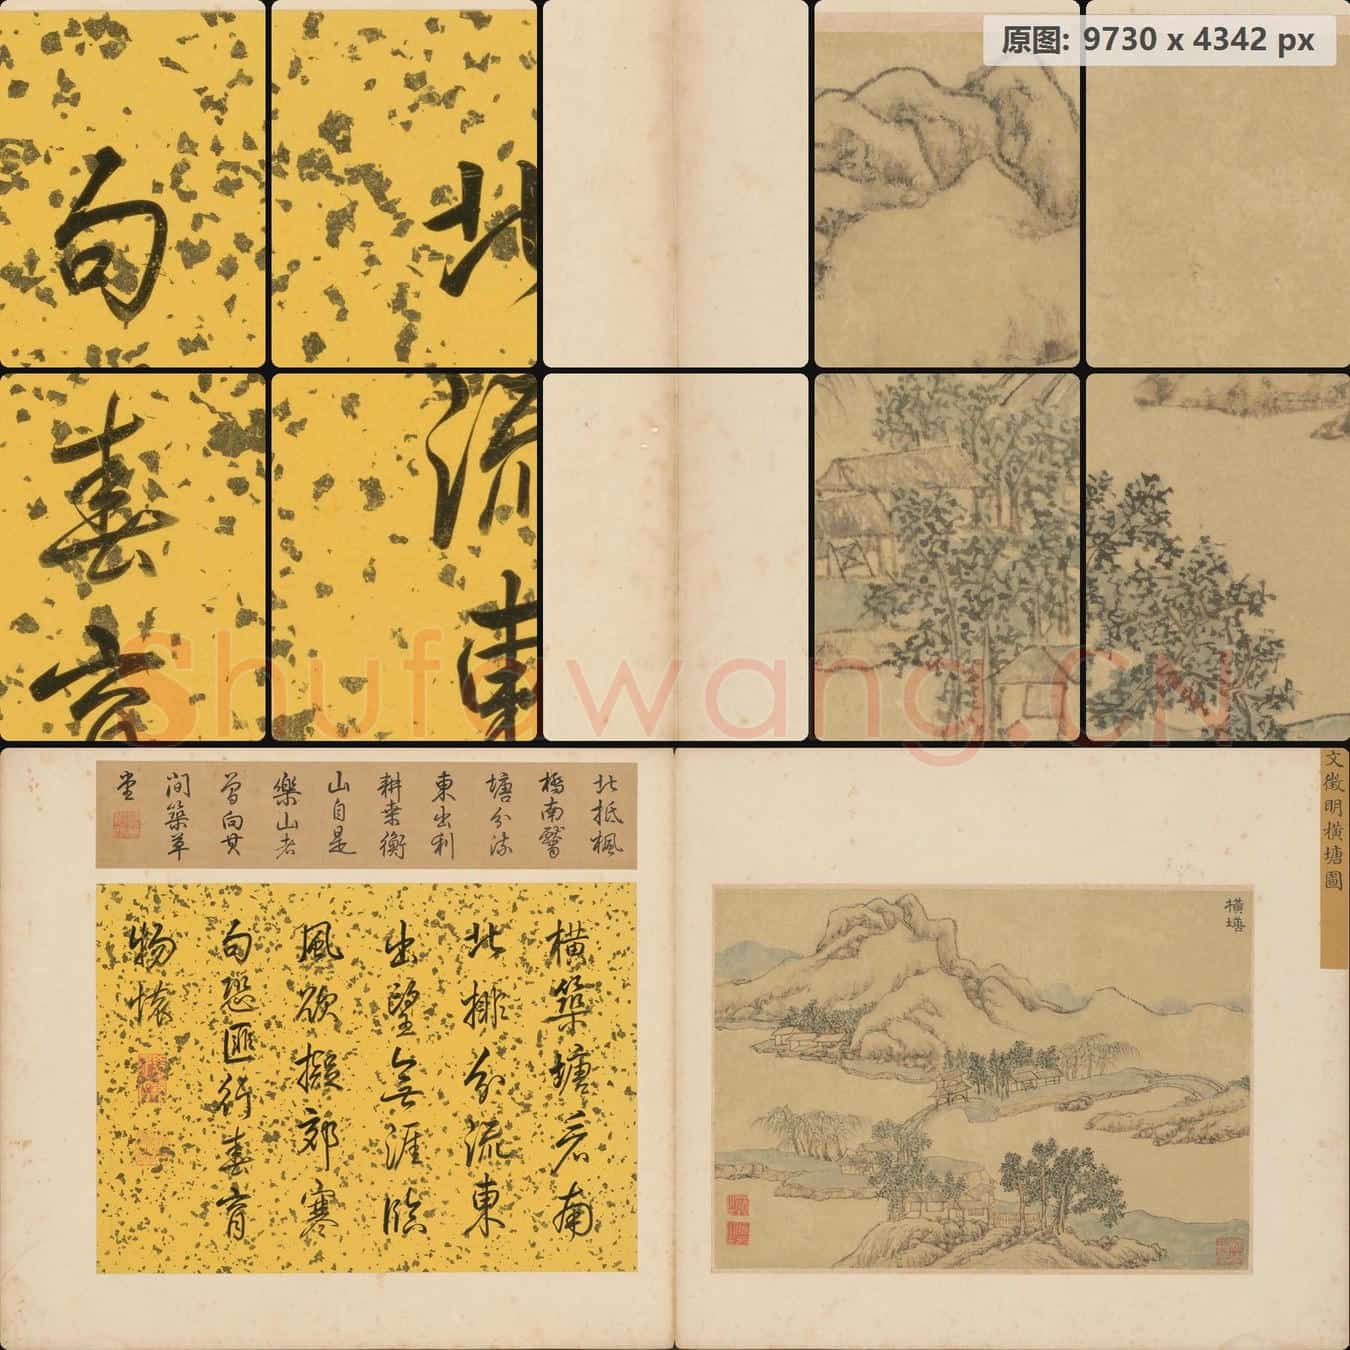 原图: 9730 x 4342 px
句
北
春
育
流
東
Shufawang.CN
文徵明橫塘圖
橫塘
北抵楓
橋南
塘分流
東出利
耕桑衡
山自是
樂山者
曾向其
間築草
堂
橫築塘南
北排分流東
出望無涯臨
風欲擬郊寒
句恐匪行春育
物懷